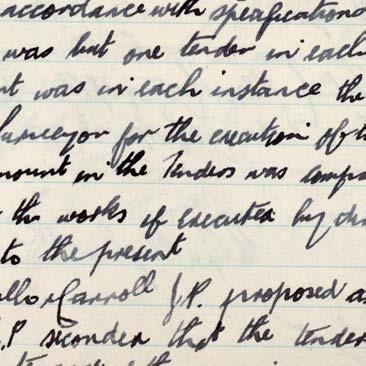 accordance with specifications
was but one tender in each
was in each instance the
Surveyor for the execution of
in the Tenders was
the works if executed by
to the present
Carroll J.P. proposed
.P seconder that the tender